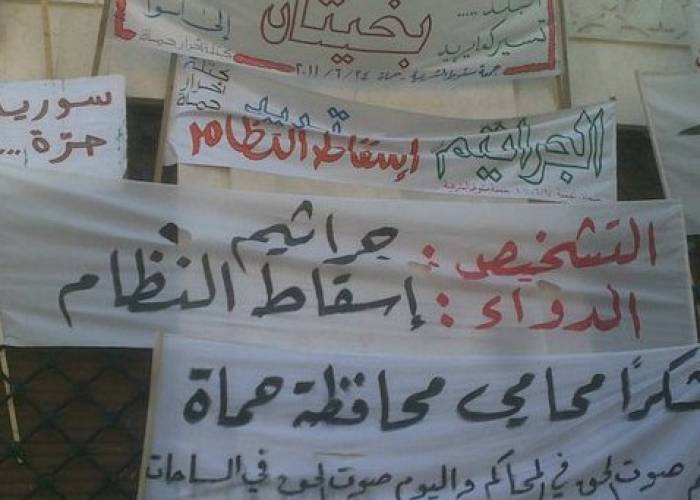 بخيتان
جمعة سقوط الشرعية
٢٠١١/٦/٢٤
كتلة أحرار حماة
الجراثيم تريد إسقاط النظام
كتلة
أحرار
حماة
سوريا
حرّة ...
التشخيص : جراثيم
الدواء : إسقاط النظام
شكراً محامي محافظة حماة
صوت الحق في المحاكم واليوم صوت الحق في الساحات